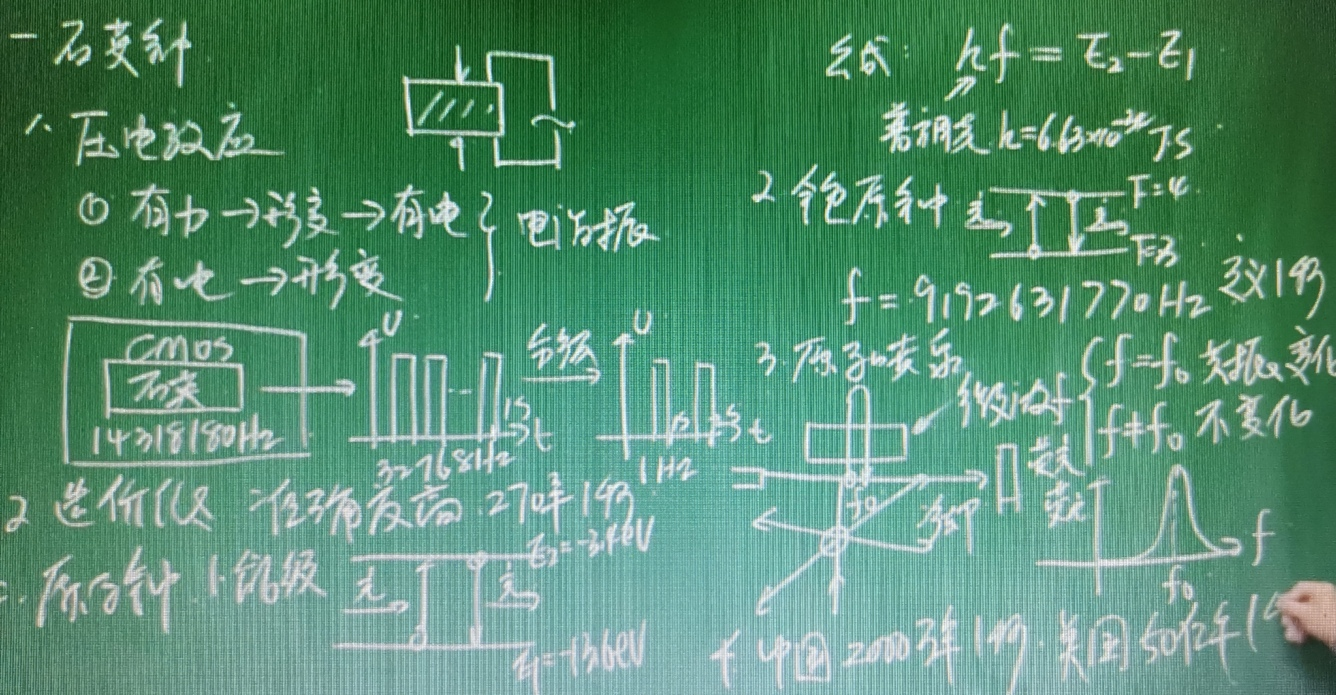 一 石英钟
1、压电效应
① 有力→形变→有电
② 有电→形变
电谐振
CMOS
石英
14318180Hz
U
1s
t
32768Hz
分频
U
1s
t
1Hz
2 造价低 准确度高 270年1秒
二. 原子钟 1.能级
E₂=-3.4eV
光
光
E₁=-13.6eV
公式: hf=E₂-E₁
普朗克 h=6.63×10⁻³⁴J·S
2 铯原钟
光
光
F=4
F=3
f=9192631770Hz 定义1秒
3.原子喷泉
微波f
f=f₀ 共振 变化
f≠f₀ 不变化
f₀
冷却
荧光
f
f₀
4 中国 2000万年1秒. 美国 50亿年1